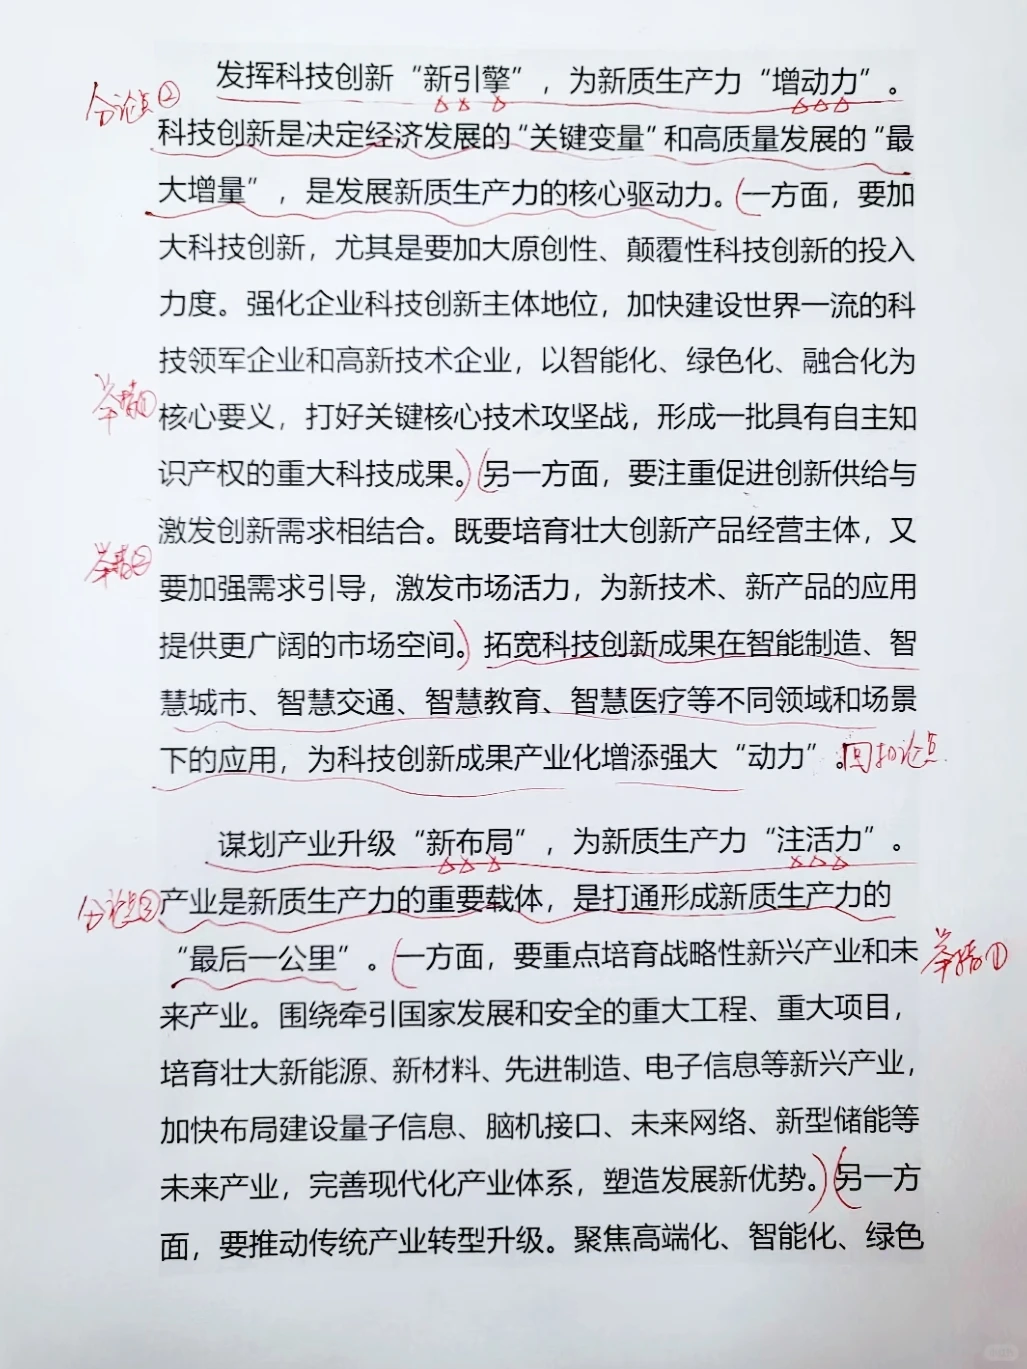 发挥科技创新“新引擎”，为新质生产力“增动力”。
分论点②
科技创新是决定经济发展的“关键变量”和高质量发展的“最
大增量”，是发展新质生产力的核心驱动力。（一方面，要加
大科技创新，尤其是要加大原创性、颠覆性科技创新的投入
力度。强化企业科技创新主体地位，加快建设世界一流的科
技领军企业和高新技术企业，以智能化、绿色化、融合化为
举措①
核心要义，打好关键核心技术攻坚战，形成一批具有自主知
识产权的重大科技成果。）（另一方面，要注重促进创新供给与
激发创新需求相结合。既要培育壮大创新产品经营主体，又
举措②
要加强需求引导，激发市场活力，为新技术、新产品的应用
提供更广阔的市场空间。）拓宽科技创新成果在智能制造、智
慧城市、智慧交通、智慧教育、智慧医疗等不同领域和场景
下的应用，为科技创新成果产业化增添强大“动力”。回扣论点
谋划产业升级“新布局”，为新质生产力“注活力”。
分论点③
产业是新质生产力的重要载体，是打通形成新质生产力的
“最后一公里”。（一方面，要重点培育战略性新兴产业和未
举措①
来产业。围绕牵引国家发展和安全的重大工程、重大项目，
培育壮大新能源、新材料、先进制造、电子信息等新兴产业，
加快布局建设量子信息、脑机接口、未来网络、新型储能等
未来产业，完善现代化产业体系，塑造发展新优势。）（另一方
面，要推动传统产业转型升级。聚焦高端化、智能化、绿色